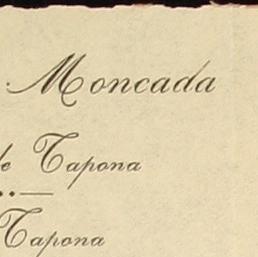 Moncada
de Tapona
Tapona